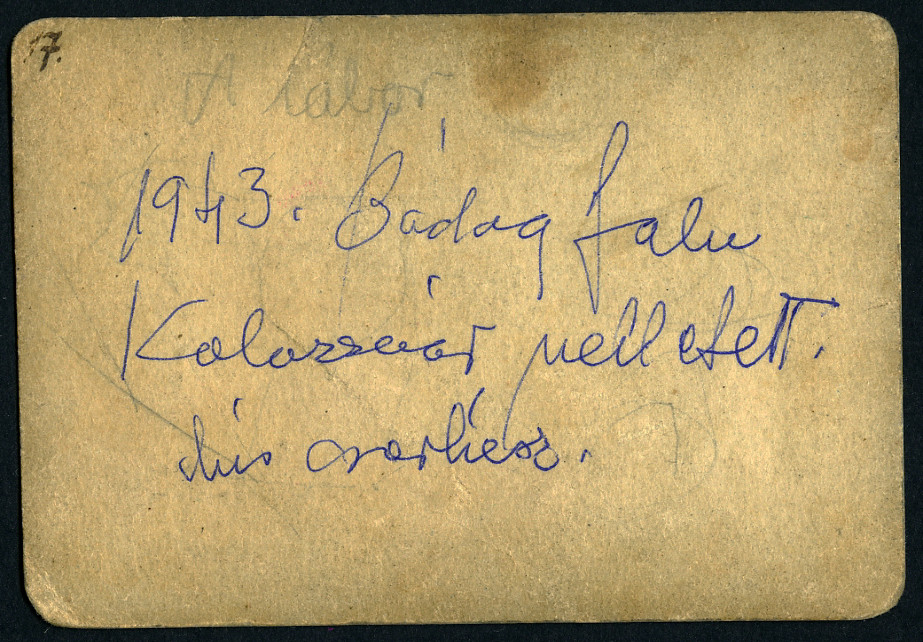 17.
A tábor
1943. Bádog falu
Kolozsvár mellett.
kis cserkész.